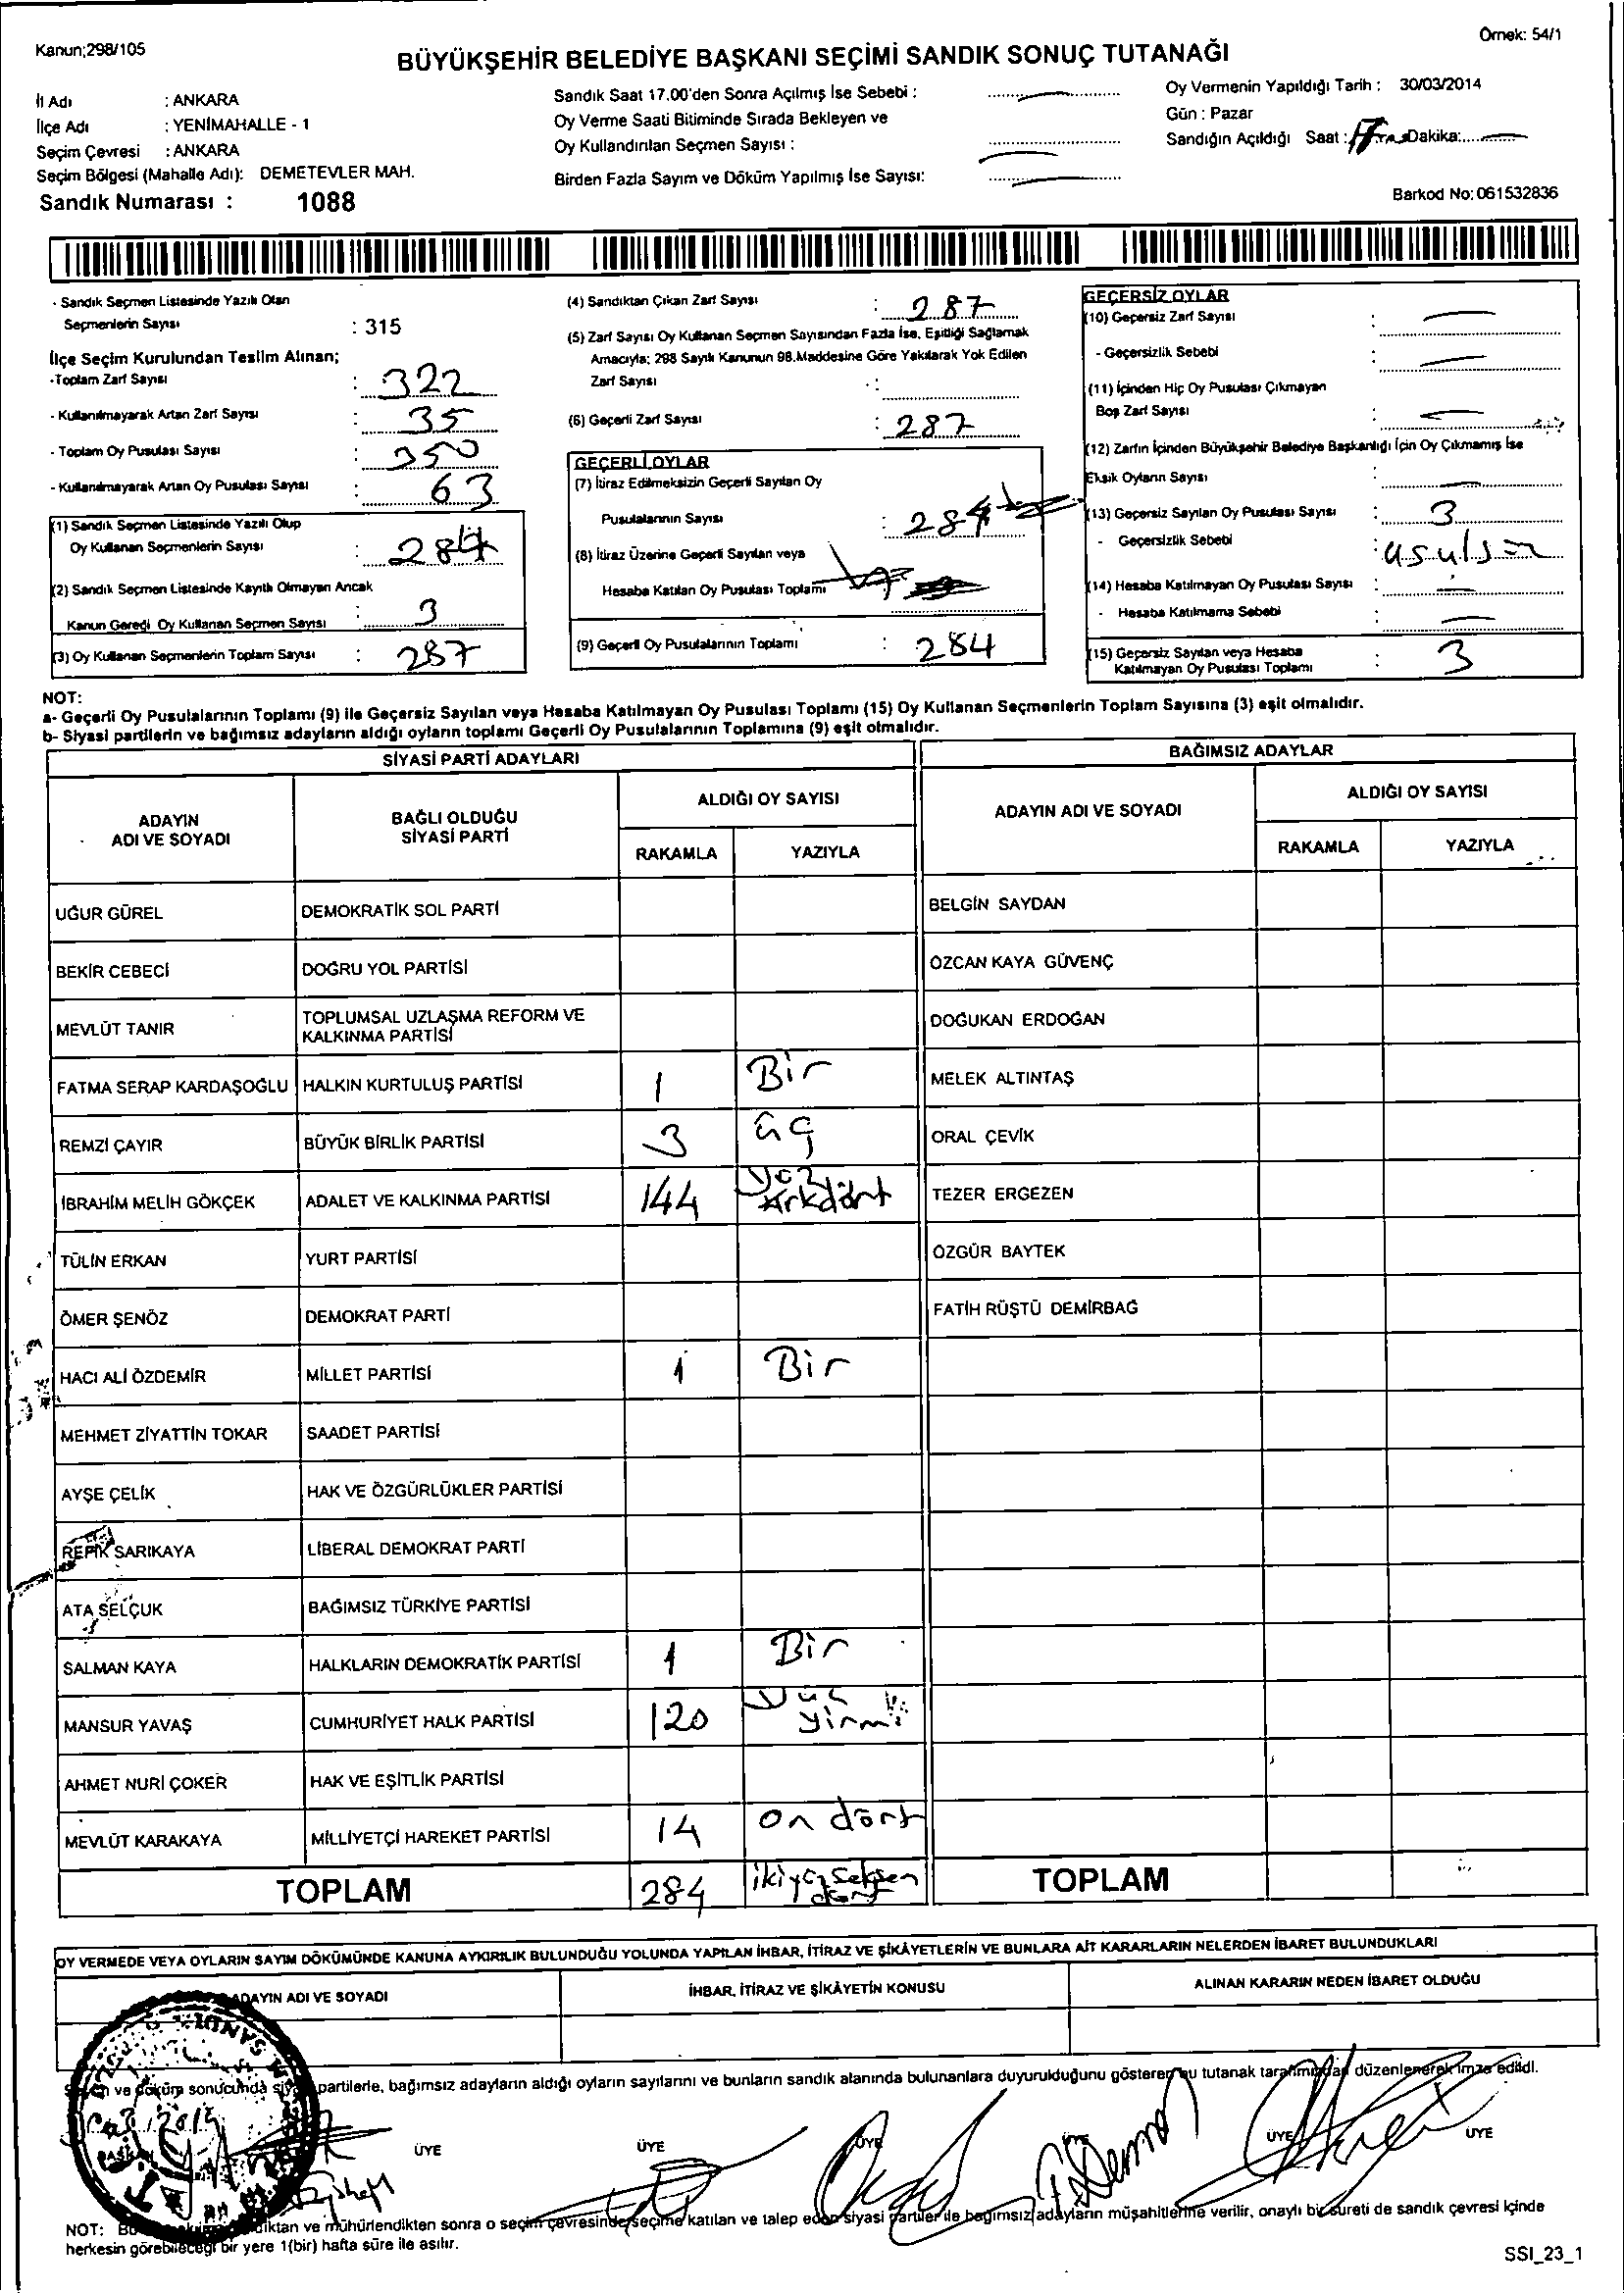 Kanun;298/105
Örnek: 54/1
BÜYÜKŞEHİR BELEDİYE BAŞKANI SEÇİMİ SANDIK SONUÇ TUTANAĞI
İl Adı : ANKARA
İlçe Adı : YENİMAHALLE - 1
Seçim Çevresi : ANKARA
Seçim Bölgesi (Mahalle Adı): DEMETEVLER MAH.
Sandık Numarası : 1088
Sandık Saat 17.00'den Sonra Açılmış İse Sebebi :
Oy Verme Saati Bitiminde Sırada Bekleyen ve
Oy Kullandırılan Seçmen Sayısı :
Birden Fazla Sayım ve Döküm Yapılmış İse Sayısı:
Oy Vermenin Yapıldığı Tarih : 30/03/2014
Gün : Pazar
Sandığın Açıldığı Saat : Dakika:
Barkod No: 061532836
- Sandık Seçmen Listesinde Yazılı Olan
Seçmenlerin Sayısı : 315
İlçe Seçim Kurulundan Teslim Alınan;
-Toplam Zarf Sayısı : 322
- Kullanılmayarak Artan Zarf Sayısı : 35
- Toplam Oy Pusulası Sayısı : 350
- Kullanılmayarak Artan Oy Pusulası Sayısı : 63
(1) Sandık Seçmen Listesinde Yazılı Olup
Oy Kullanan Seçmenlerin Sayısı : 284
(2) Sandık Seçmen Listesinde Kayıtlı Olmayan Ancak
Kanun Gereği Oy Kullanan Seçmen Sayısı : 3
(3) Oy Kullanan Seçmenlerin Toplam Sayısı : 287
(4) Sandıktan Çıkan Zarf Sayısı : 287
(5) Zarf Sayısı Oy Kullanan Seçmen Sayısından Fazla İse, Eşitliği Sağlamak
Amacıyla; 298 Sayılı Kanunun 98.Maddesine Göre Yakılarak Yok Edilen
Zarf Sayısı :
(6) Geçerli Zarf Sayısı : 287
GEÇERLİ OYLAR
(7) İtiraz Edilmeksizin Geçerli Sayılan Oy
Pusulalarının Sayısı : 284
(8) İtiraz Üzerine Geçerli Sayılan veya
Hesaba Katılan Oy Pusulası Toplamı
(9) Geçerli Oy Pusulalarının Toplamı : 284
GEÇERSİZ OYLAR
(10) Geçersiz Zarf Sayısı :
- Geçersizlik Sebebi :
(11) İçinden Hiç Oy Pusulası Çıkmayan
Boş Zarf Sayısı :
(12) Zarfın İçinden Büyükşehir Belediye Başkanlığı İçin Oy Çıkmamış İse
Eksik Oyların Sayısı :
(13) Geçersiz Sayılan Oy Pusulası Sayısı : 3
- Geçersizlik Sebebi : usulsüz
(14) Hesaba Katılmayan Oy Pusulası Sayısı :
- Hesaba Katılmama Sebebi :
(15) Geçersiz Sayılan veya Hesaba
Katılmayan Oy Pusulası Toplamı : 3
NOT:
a- Geçerli Oy Pusulalarının Toplamı (9) ile Geçersiz Sayılan veya Hesaba Katılmayan Oy Pusulası Toplamı (15) Oy Kullanan Seçmenlerin Toplam Sayısına (3) eşit olmalıdır.
b- Siyasi partilerin ve bağımsız adayların aldığı oyların toplamı Geçerli Oy Pusulalarının Toplamına (9) eşit olmalıdır.
SİYASİ PARTİ ADAYLARI
BAĞIMSIZ ADAYLAR
ADAYIN
ADI VE SOYADI
BAĞLI OLDUĞU
SİYASİ PARTİ
ALDIĞI OY SAYISI
RAKAMLA YAZIYLA
ADAYIN ADI VE SOYADI
ALDIĞI OY SAYISI
RAKAMLA YAZIYLA
UĞUR GÜREL DEMOKRATİK SOL PARTİ BELGİN SAYDAN
BEKİR CEBECİ DOĞRU YOL PARTİSİ ÖZCAN KAYA GÜVENÇ
MEVLÜT TANIR TOPLUMSAL UZLAŞMA REFORM VE
KALKINMA PARTİSİ DOĞUKAN ERDOĞAN
FATMA SERAP KARDAŞOĞLU HALKIN KURTULUŞ PARTİSİ 1 Bir MELEK ALTINTAŞ
REMZİ ÇAYIR BÜYÜK BİRLİK PARTİSİ 3 üç ORAL ÇEVİK
İBRAHİM MELİH GÖKÇEK ADALET VE KALKINMA PARTİSİ 144 Yüz
kırkdört TEZER ERGEZEN
TÜLİN ERKAN YURT PARTİSİ ÖZGÜR BAYTEK
ÖMER ŞENÖZ DEMOKRAT PARTİ FATİH RÜŞTÜ DEMİRBAĞ
HACI ALİ ÖZDEMİR MİLLET PARTİSİ 1 Bir
MEHMET ZİYATTİN TOKAR SAADET PARTİSİ
AYŞE ÇELİK HAK VE ÖZGÜRLÜKLER PARTİSİ
REFİK SARIKAYA LİBERAL DEMOKRAT PARTİ
ATA SELÇUK BAĞIMSIZ TÜRKİYE PARTİSİ
SALMAN KAYA HALKLARIN DEMOKRATİK PARTİSİ 1 Bir
MANSUR YAVAŞ CUMHURİYET HALK PARTİSİ 120 Yüz
yirmi
AHMET NURİ ÇOKER HAK VE EŞİTLİK PARTİSİ
MEVLÜT KARAKAYA MİLLİYETÇİ HAREKET PARTİSİ 14 on dört
TOPLAM 284 ikiyüzseksen
dört TOPLAM
OY VERMEDE VEYA OYLARIN SAYIM DÖKÜMÜNDE KANUNA AYKIRILIK BULUNDUĞU YOLUNDA YAPILAN İHBAR, İTİRAZ VE ŞİKÂYETLERİN VE BUNLARA AİT KARARLARIN NELERDEN İBARET BULUNDUKLARI
ADAYIN ADI VE SOYADI İHBAR, İTİRAZ VE ŞİKÂYETİN KONUSU ALINAN KARARIN NEDEN İBARET OLDUĞU
ve döküm sonucunda siyasi partilerle, bağımsız adayların aldığı oyların sayılarını ve bunların sandık alanında bulunanlara duyurulduğunu gösteren bu tutanak tarafımızdan düzenlenerek imza edildi.
ÜYE ÜYE ÜYE ÜYE ÜYE ÜYE
NOT: ve mühürlendikten sonra o seçim çevresinde seçime katılan ve talep eden siyasi partiler ile bağımsız adayların müşahitlerine verilir, onaylı bir sureti de sandık çevresi içinde
herkesin görebileceği bir yere 1(bir) hafta süre ile asılır.
SSI_23_1